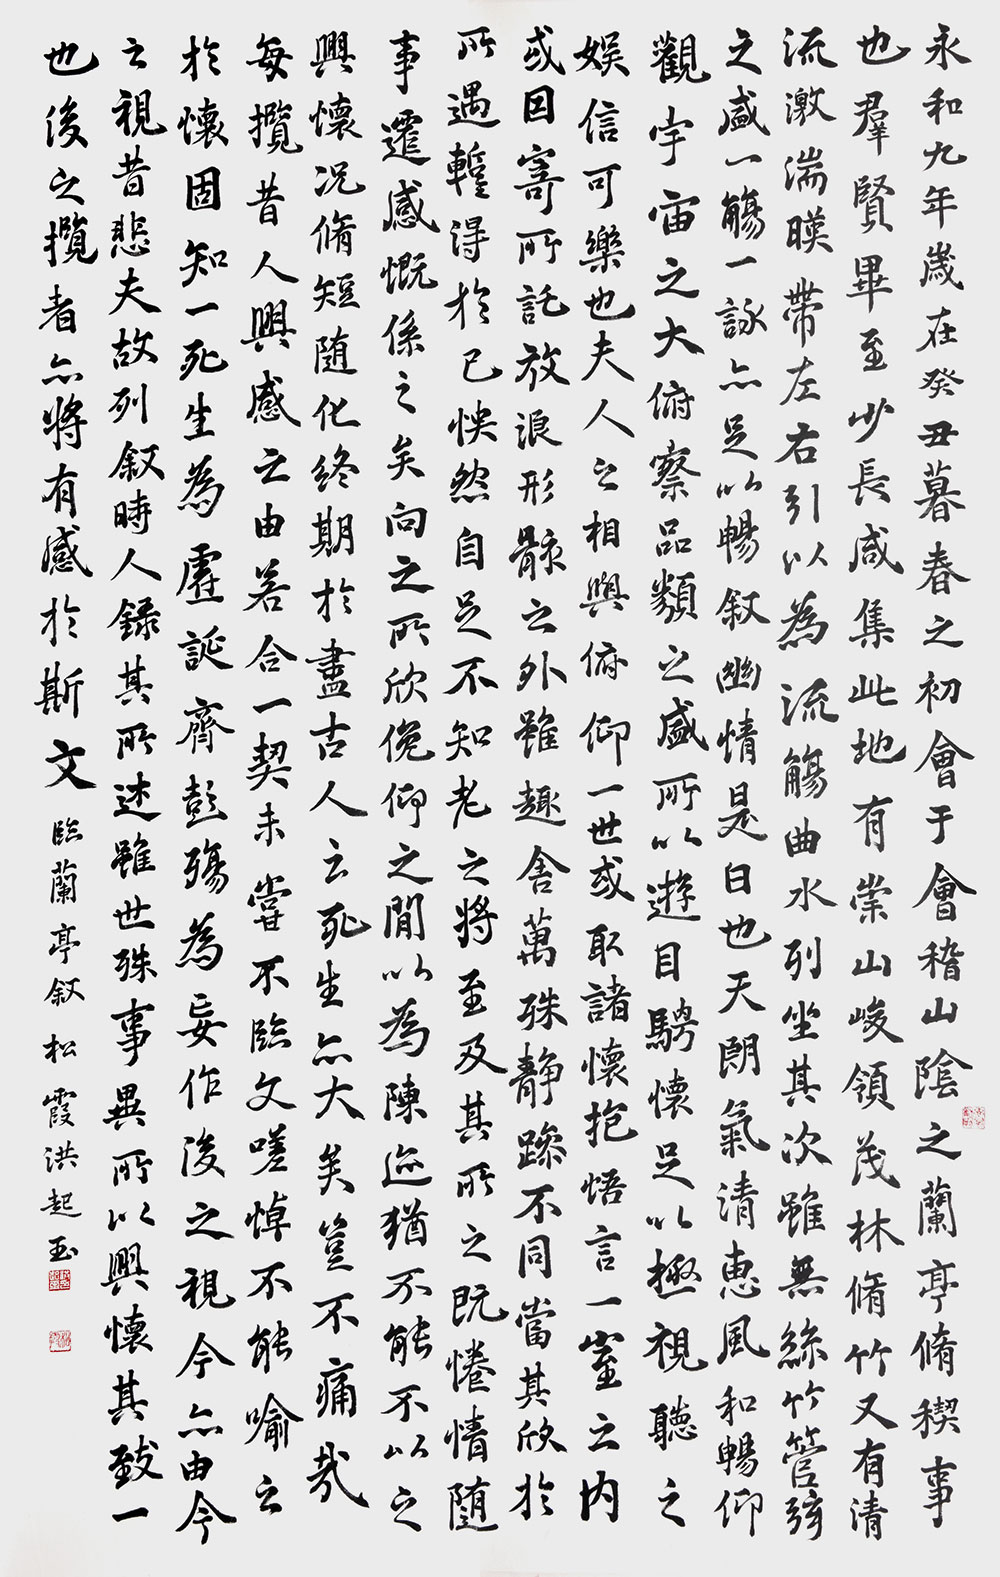 永和九年歲在癸丑暮春之初會于會稽山陰之蘭亭脩稧事
也羣賢畢至少長咸集此地有崇山峻領茂林脩竹又有清
流激湍暎帶左右引以為流觴曲水列坐其次雖無絲竹管弦
之盛一觴一詠亦足以暢叙幽情是日也天朗氣清惠風和暢仰
觀宇宙之大俯察品類之盛所以遊目騁懷足以極視聽之
娛信可樂也夫人之相與俯仰一世或取諸懷抱悟言一室之內
或因寄所託放浪形骸之外雖趣舍萬殊静躁不同當其欣於
所遇蹔得於己怏然自足不知老之將至及其所之既惓情隨
事遷感慨係之矣向之所欣俛仰之閒以為陳迹猶不能不以之
興懷况脩短隨化終期於盡古人云死生亦大矣豈不痛哉
每攬昔人興感之由若合一契未嘗不臨文嗟悼不能喻之
於懷固知一死生為虛誕齊彭殤為妄作後之視今亦由今
之視昔悲夫故列叙時人錄其所述雖世殊事異所以興懷其致一
也後之攬者亦將有感於斯文
臨蘭亭叙松霞洪起玉